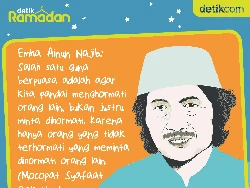 detik
Ramadan
detikcom
Emha Ainun Najib:
Salah satu guna
berpuasa adalah agar
kita pandai menghormati
orang lain, bukan justru
minta dihormati. Karena
hanya orang yang tidak
terhormati yang meminta
dihormati orang lain.
(Mocopat Syafaat